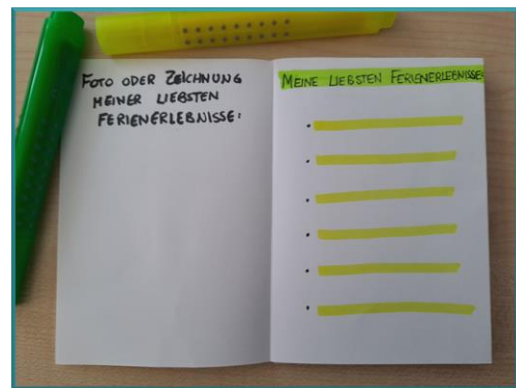 FOTO ODER ZEICHNUNG
MEINER LIEBSTEN
FERIENERLEBNISSE:
MEINE LIEBSTEN FERIENERLEBNISSE: